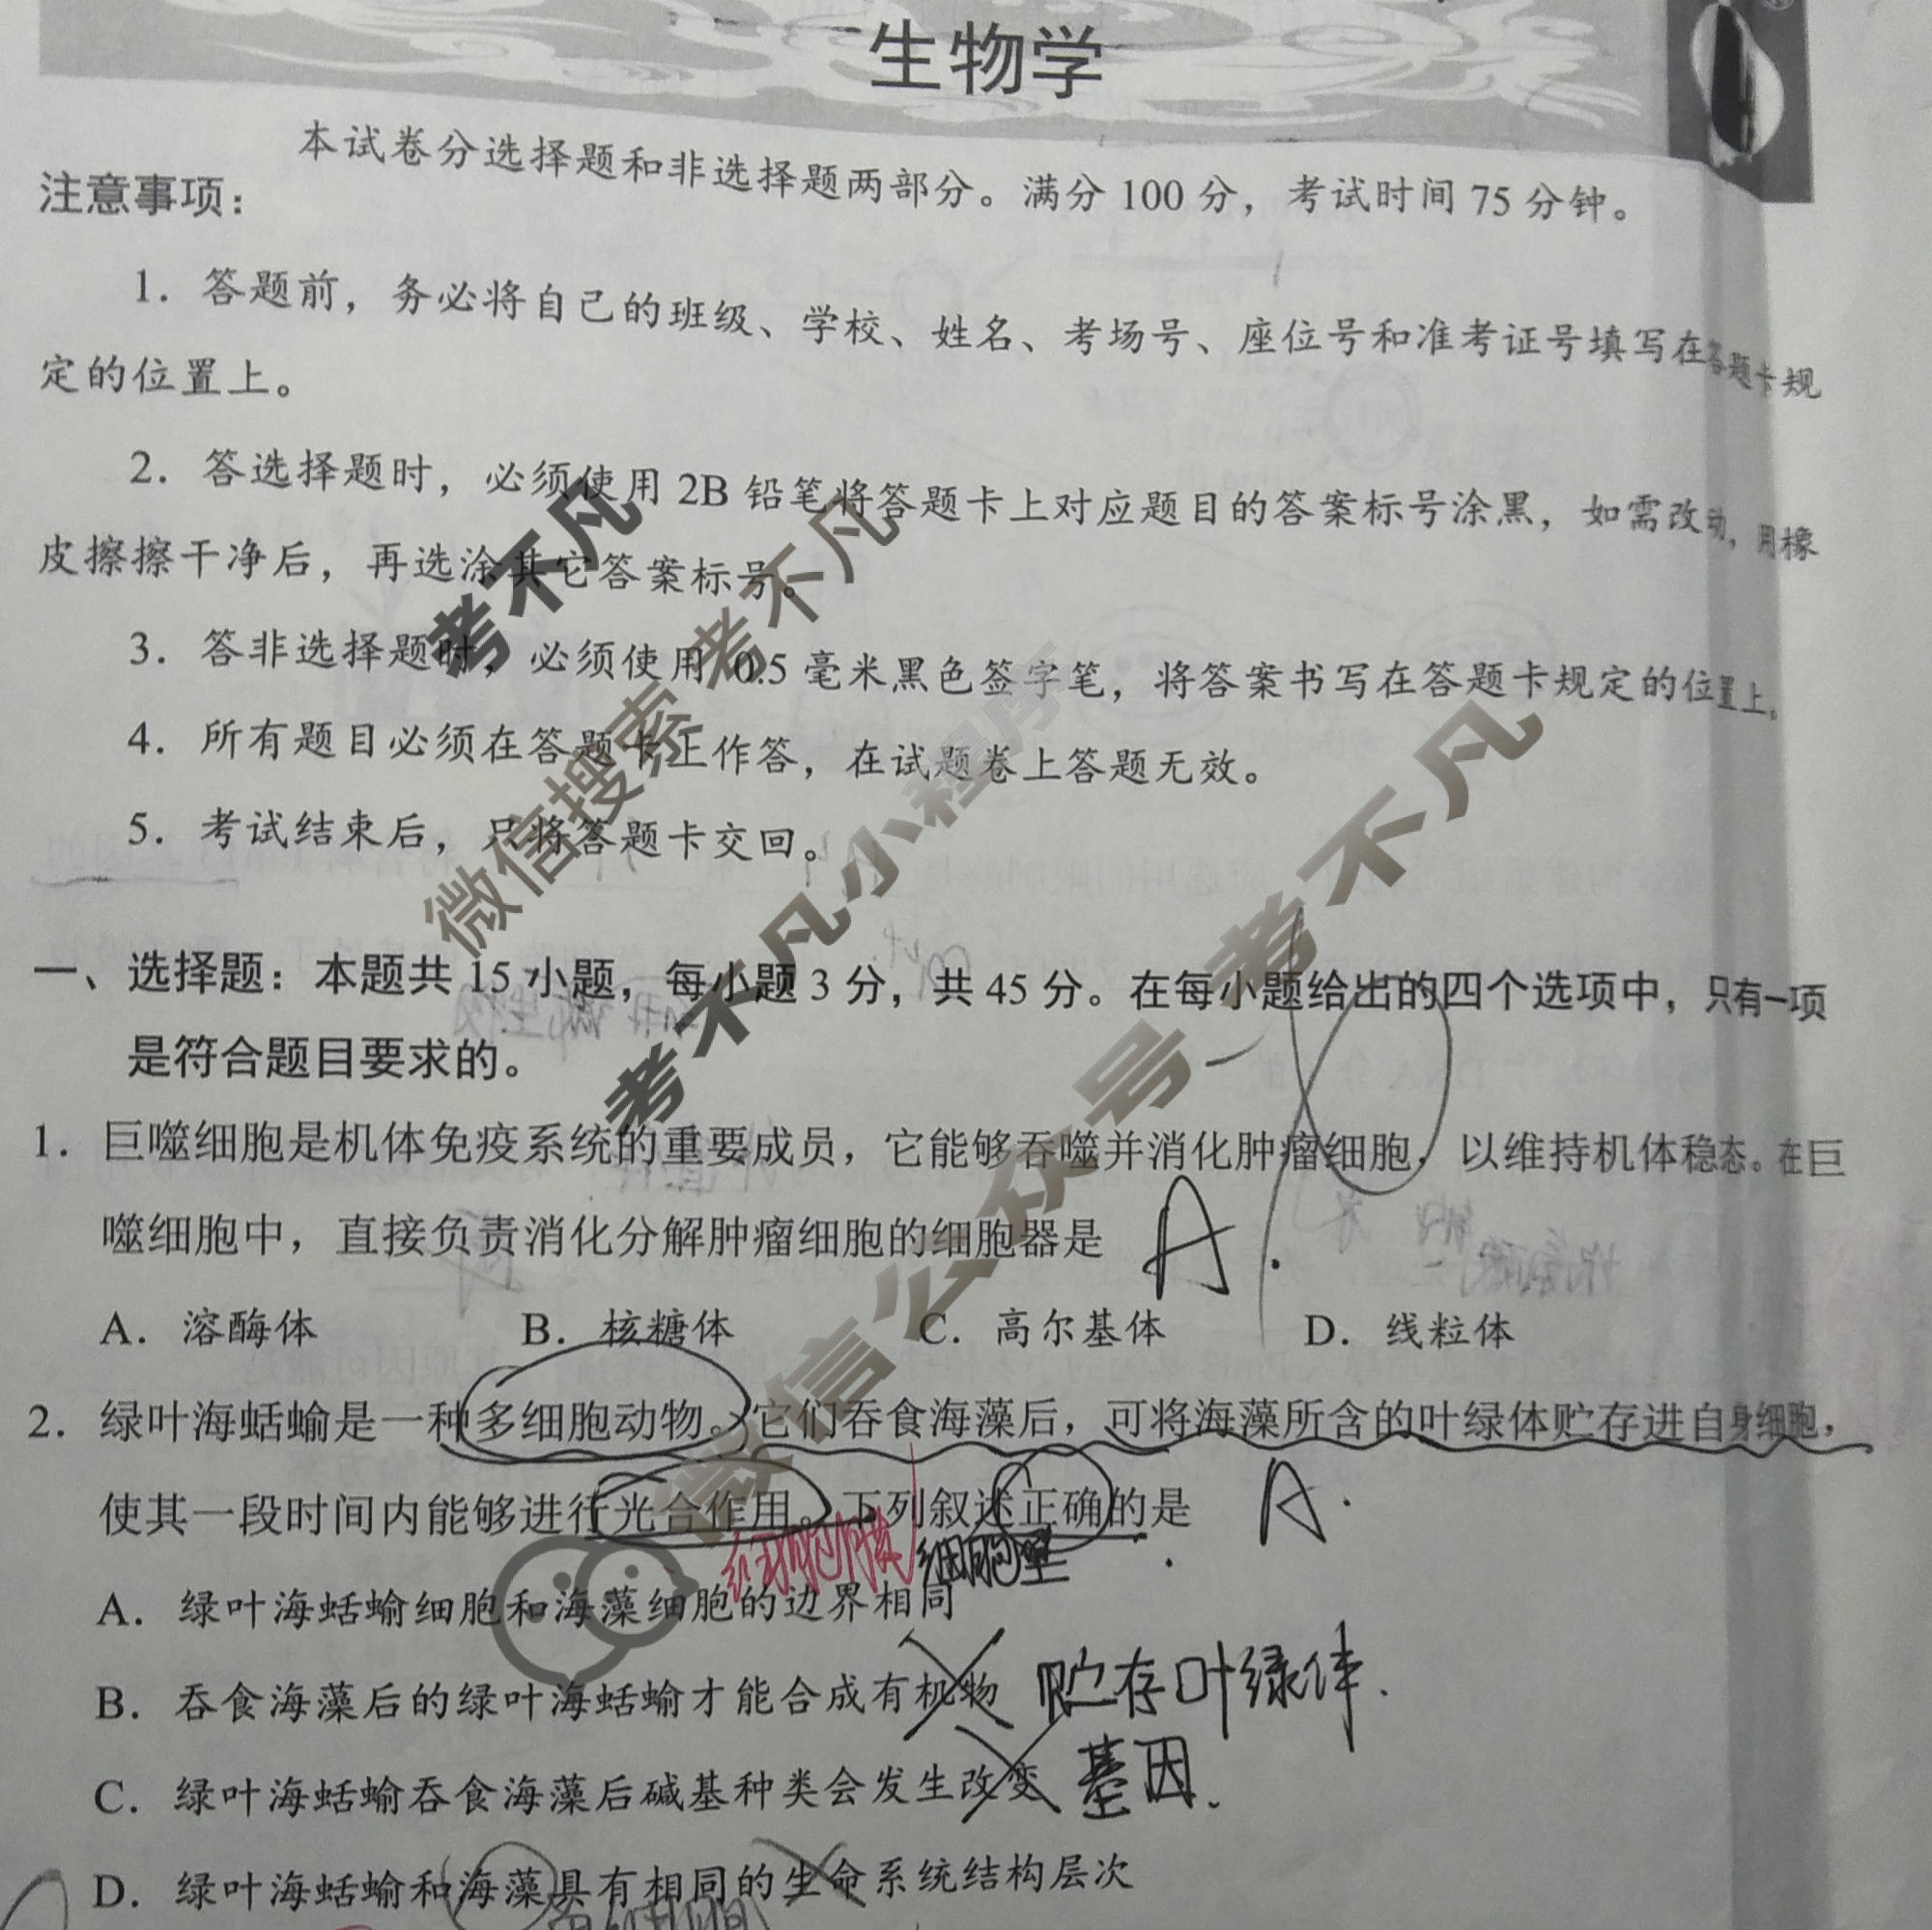 生物学
本试卷分选择题和非选择题两部分。满分 100 分，考试时间 75 分钟。
注意事项：
1．答题前，务必将自己的班级、学校、姓名、考场号、座位号和准考证号填写在答题卡规
定的位置上。
2．答选择题时，必须使用 2B 铅笔将答题卡上对应题目的答案标号涂黑，如需改动，用橡
皮擦擦干净后，再选涂其它答案标号。
3．答非选择题时，必须使用 0.5 毫米黑色签字笔，将答案书写在答题卡规定的位置上。
4．所有题目必须在答题卡上作答，在试题卷上答题无效。
5．考试结束后，只将答题卡交回。
考不凡
微信搜索 考不凡
考不凡小程序
微信公众号 考不凡
一、选择题：本题共 15 小题，每小题 3 分，共 45 分。在每小题给出的四个选项中，只有一项
是符合题目要求的。
1．巨噬细胞是机体免疫系统的重要成员，它能够吞噬并消化肿瘤细胞，以维持机体稳态。在巨
噬细胞中，直接负责消化分解肿瘤细胞的细胞器是 A.
A．溶酶体 B．核糖体 C．高尔基体 D．线粒体
2．绿叶海蛞蝓是一种多细胞动物。它们吞食海藻后，可将海藻所含的叶绿体贮存进自身细胞，
使其一段时间内能够进行光合作用。下列叙述正确的是 A.
细胞膜 细胞壁
A．绿叶海蛞蝓细胞和海藻细胞的边界相同
B．吞食海藻后的绿叶海蛞蝓才能合成有机物 贮存叶绿体.
C．绿叶海蛞蝓吞食海藻后碱基种类会发生改变 基因.
D．绿叶海蛞蝓和海藻具有相同的生命系统结构层次